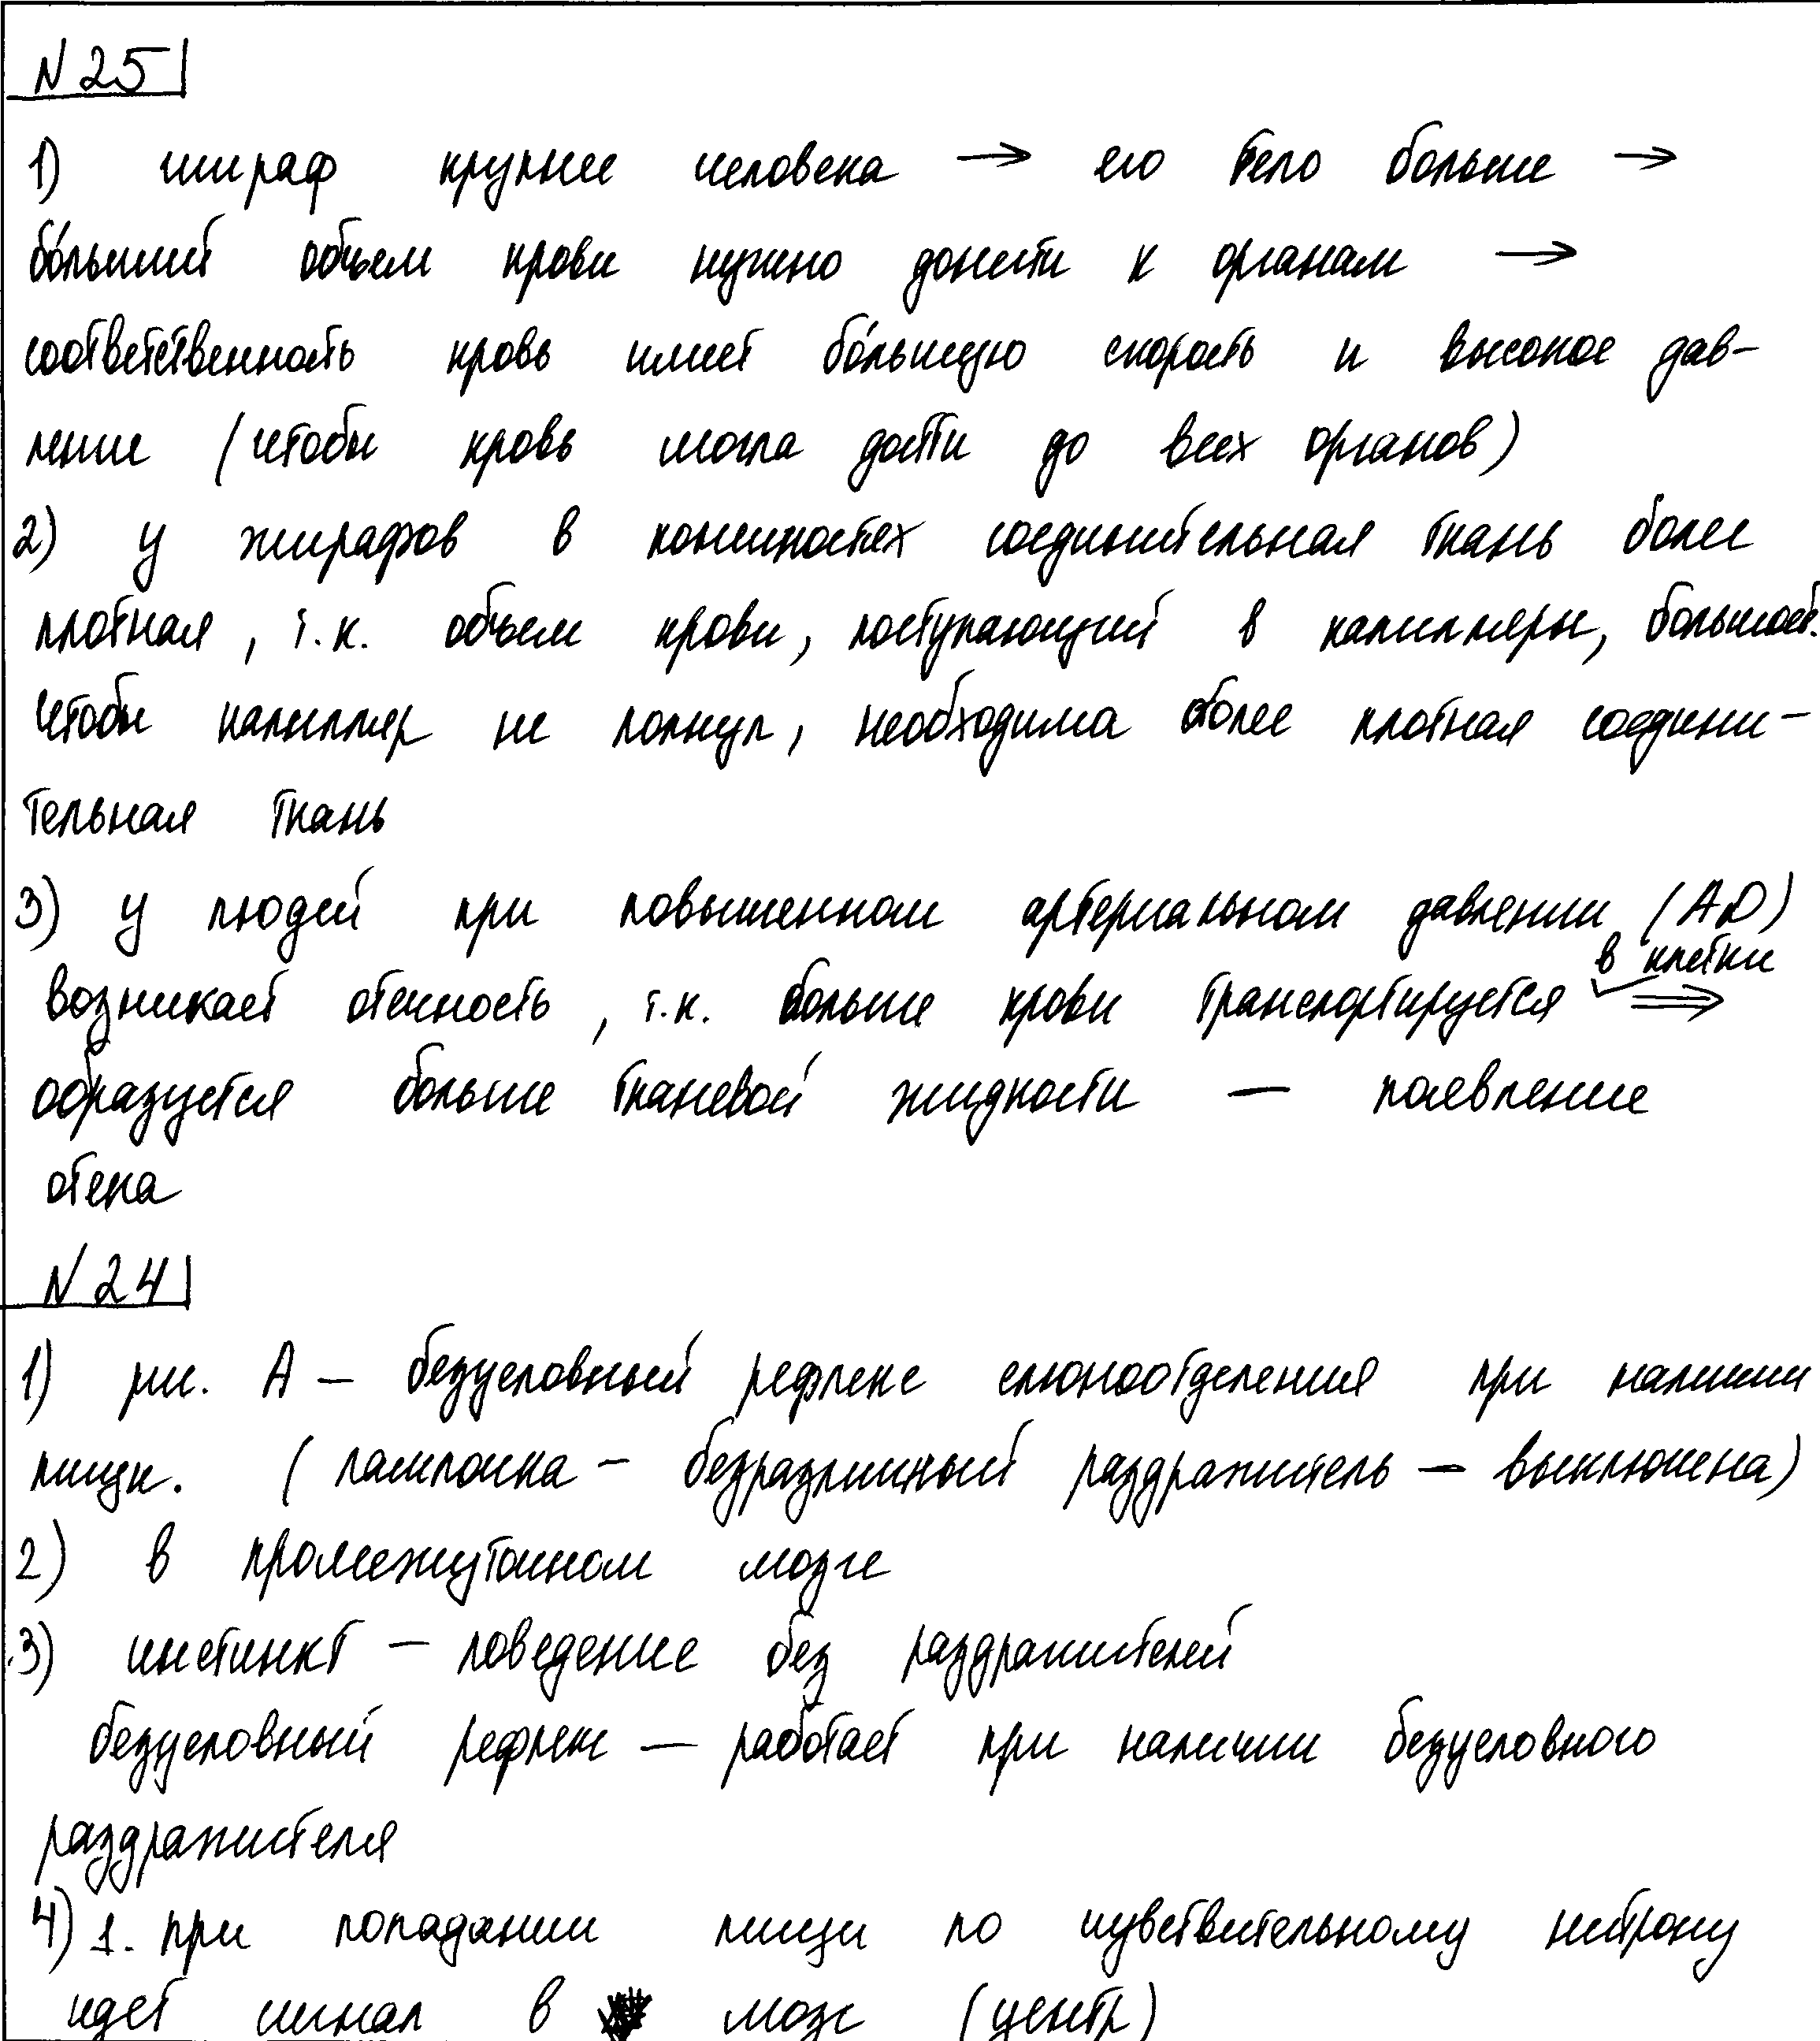 N 25
1) жираф крупнее человека → его тело больше →
бо́льший объем крови нужно донести к органам →
соответственность кровь имеет бо́льшую скорость и высокое дав-
ление (чтобы кровь могла дойти до всех органов)
2) у жирафов в конечностях соединительная ткань более
плотная, т.к. объем крови, поступающий в капилляры, большой.
Чтобы капилляр не лопнул, необходима более плотная соедини-
тельная ткань
3) у людей при повышенном артериальном давлении (АД)
в клетки
возникает отечность, т.к. больше крови транспортируется ⇒
образуется больше тканевой жидкости — появление
отека
N 24
1) рис. А — безусловный рефлекс слюноотделения при наличии
пищи. (лампочка — безразличный раздражитель — выключена)
2) в промежуточном мозге
3) инстинкт — поведение без раздражителей
безусловный рефлекс — работает при наличии безусловного
раздражителя
4) 1. при попадании пищи по чувствительному нейрону
идет сигнал в мозг (центр)